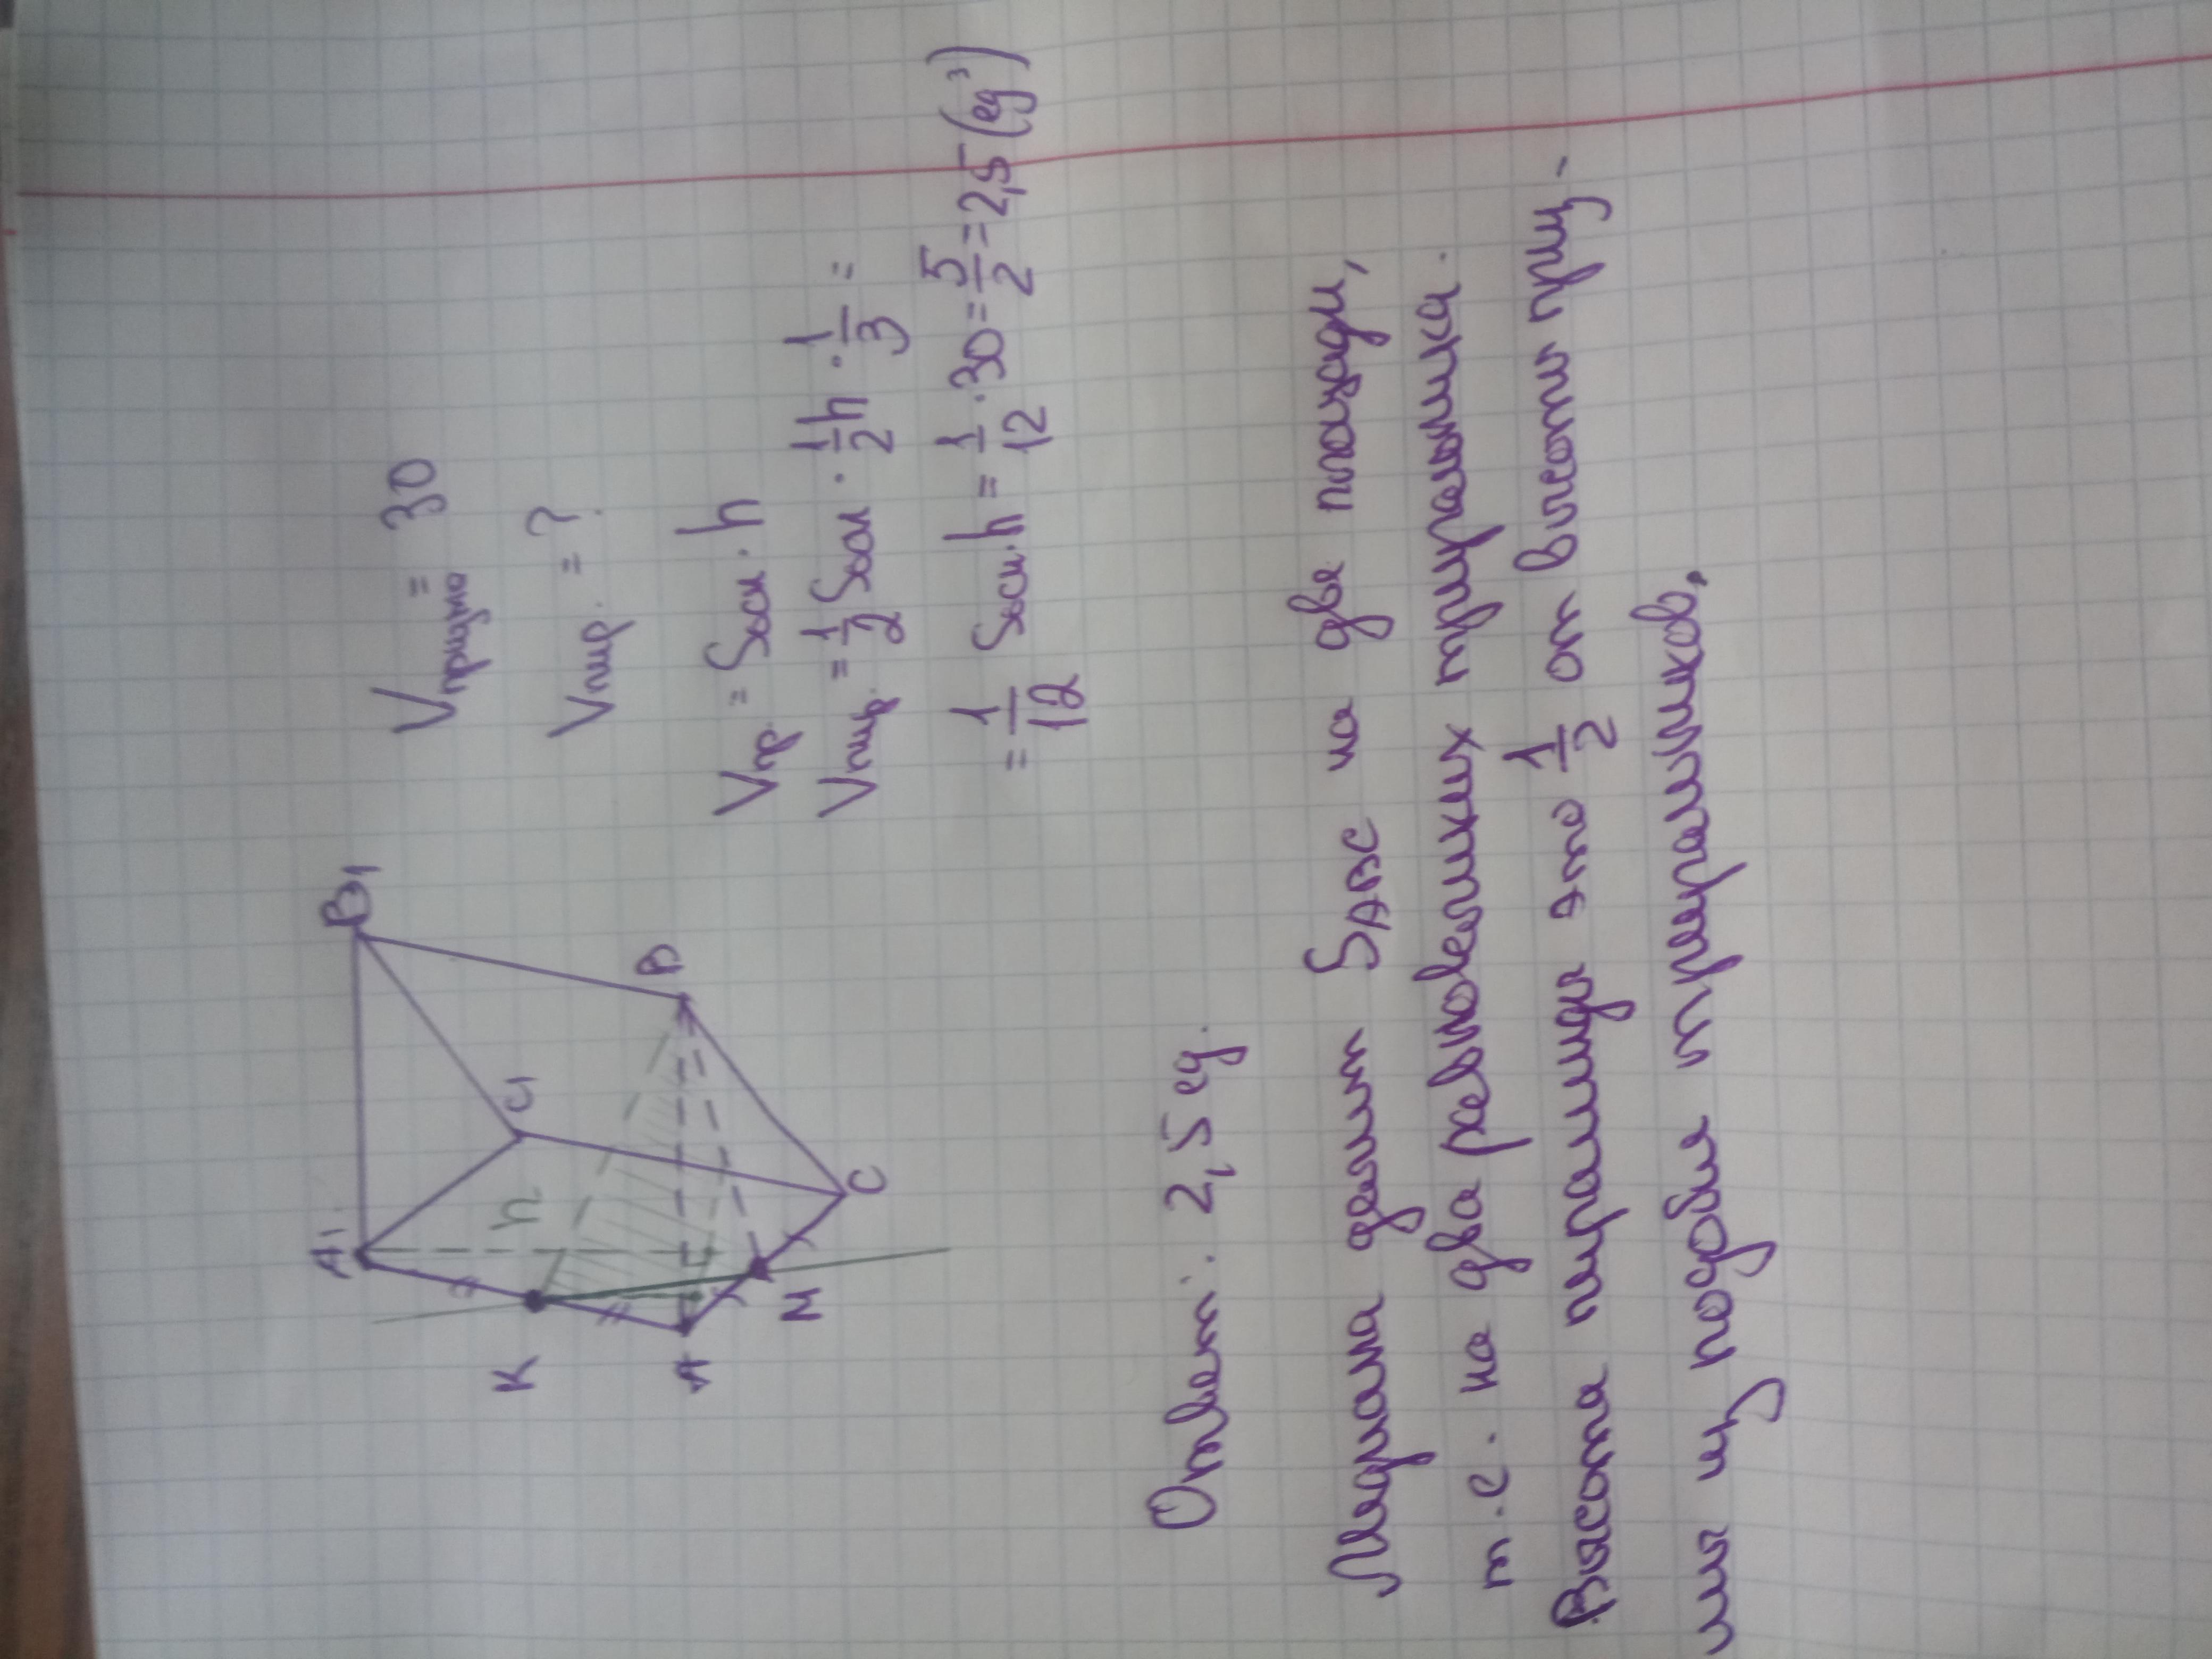 A₁ B₁
C₁
h
K
A B
M
C
Vпризма = 30
Vпир. = ?
Vпр = Sосн · h
Vпир. = 1/2 Sосн · 1/2 h · 1/3 =
= 1/12 Sосн · h = 1/12 · 30 = 5/2 = 2,5 (ед³)
Ответ: 2,5 ед.
Медиана делит SABC на две площади,
т.е. на два равновеликих треугольника.
Высота пирамиды это 1/2 от высоты приз-
мы из подобия треугольников,